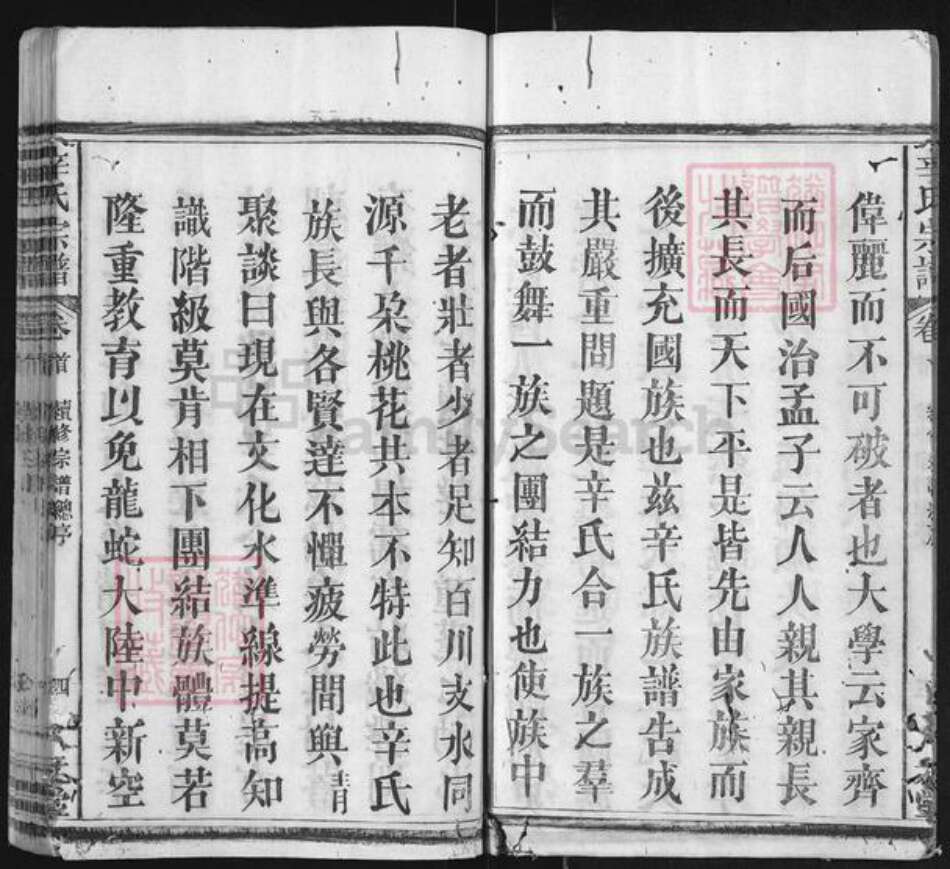 偉麗而不可破者也大學云家齊
而后國治孟子云人人親其親長
其長而天下平是皆先由家族而
後擴充國族也茲辛氏族譜告成
其嚴重問題是辛氏合一族之羣
而鼓舞一族之團結力也使族中
老者壯者少者足知百川支水同
源千朶桃花共本不特此也辛氏
族長與各賢達不憚疲勞間與
聚談曰現在文化水準線提高知
識階級莫肯相下團結族體莫若
隆重教育以免龍蛇大陸中新空
辛氏宗譜 卷首 續修宗譜總序 四
FamilySearch